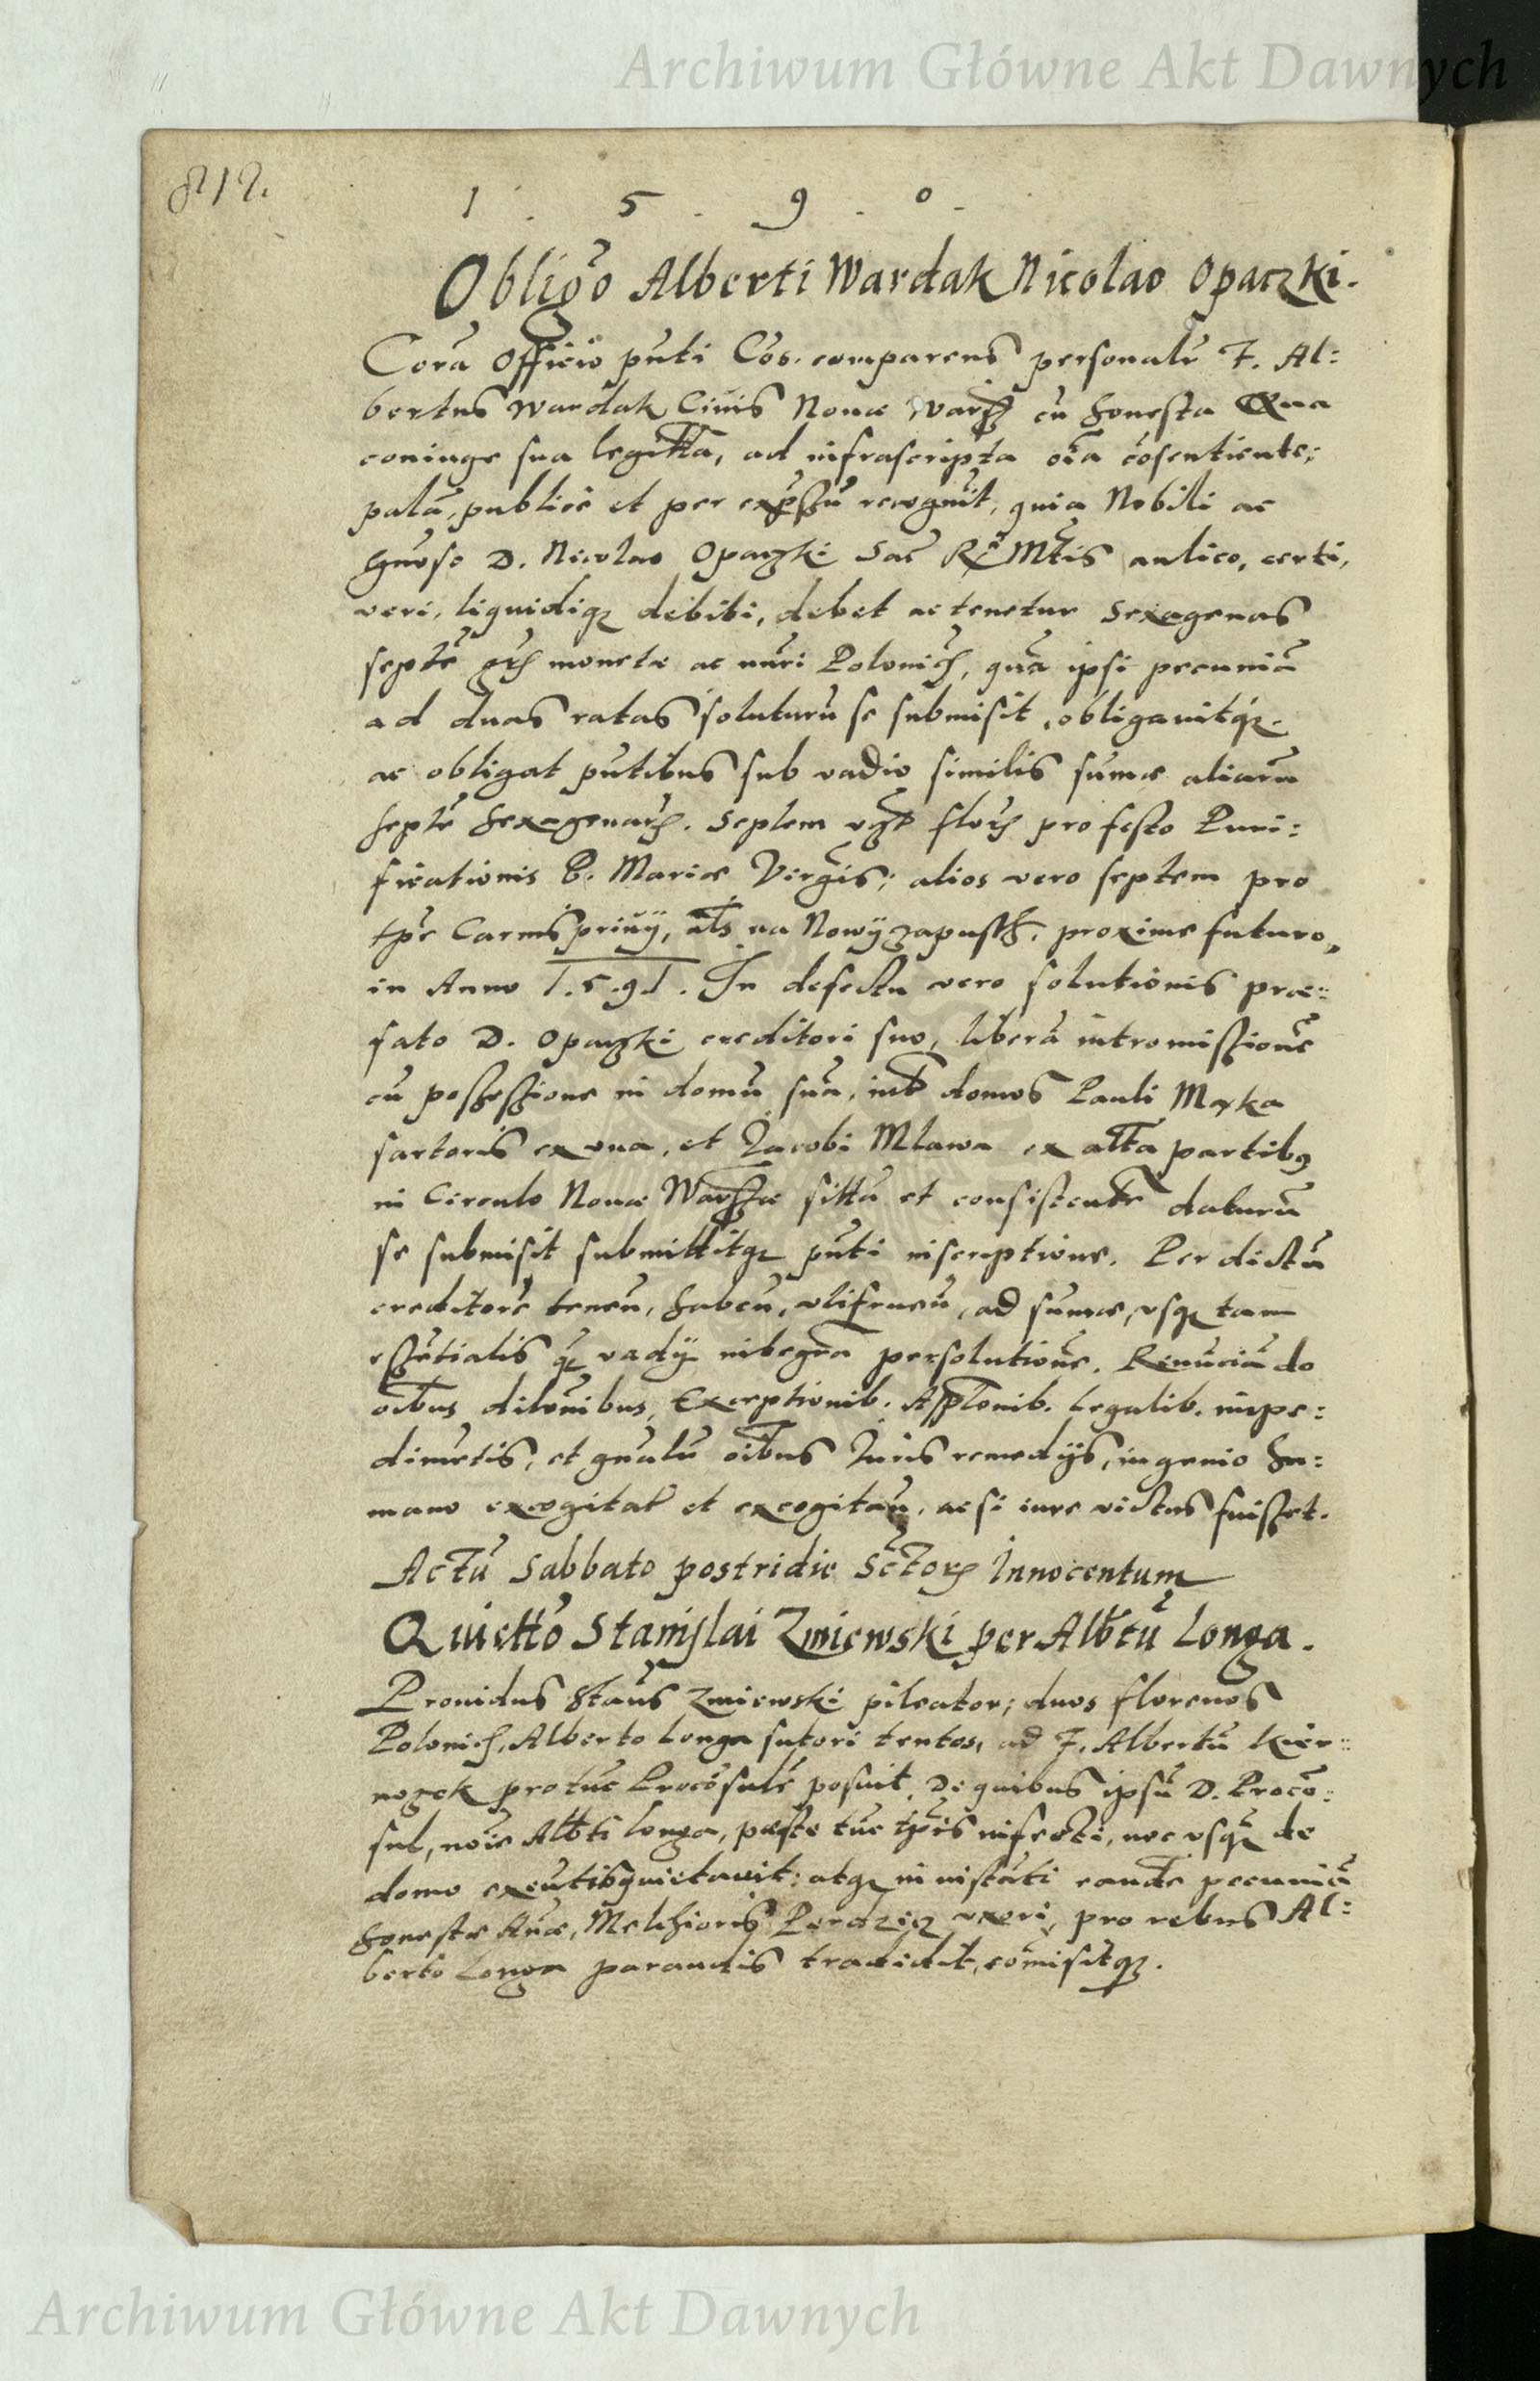 Archiwum Główne Akt Dawnych
812.
1 . 5 . 9 . 0 .
Obligo Alberti Wardak Nicolao Opaczki.
Corā Officio pñti Cōs. comparens personalr F. Al:
bertus Wardak Ciuis Nouæ Warsz cū honesta Anna
coniuge sua legitta, ad infrascripta oīa cōsentiente;
palā, publice et per expssū recognuit, quia Nobili ac
Gnoso D. Nicolao Opaczki Sac Rē Mtis aulico, certi,
veri, liquidiq; debiti, debet ac tenetur Sexagenas
septē gr monetæ ac nūri Polonich, quā ipsi pecuniā
ad duas ratas soluturū se submisit, obligauitq;.
ac obligat pñtibus sub vadio similis sumæ aliarū
septē sexagenar. Septem vz flor pro festo Puri:
ficationis B. Mariæ Virgīs; alios vero septem pro
tpe Carnis priuij, als na Nowy zapusth, proxime futuro,
in Anno 1.5.91. In defectu vero solutionis præ:
fato D. Opaczki creditori suo, liberā intromissionē
cū possessione in domū suā, int domos Pauli Mayka
sartoris ex vna, et Jacobi Mlawa ex alta partibq
in Circulo Nouæ Warszæ sittā et consistentē daturū
se submisit submittitq; pñti inscriptione. Per dictū
creditorē tenen, haben, vtifruen, ad sumæ, vsq; tam
essētialis q vadij integrā persolutionē. Renūciādo
oībus dilōnibus, Exceptionib. Applonib. Legalib. impe:
dimētis, et gnalr oībus Juris remedijs, ingenio hu:
mano excogitat et excogitan, ac si iure victus fuisset.
Actū Sabbato postridie Sctor Innocentum
Quietto Stanislai Zmiewski per Albtū Longa.
Prouidus Staus Zmiewski pileator; duos florenos
Polonich, Alberto Longa sutori tentos, ad F. Albertū Kier:
nozek pro tūc Procōsulē posuit, De quibus ipsū D. Procō:
sul, noīe Albti Longa, peste tūc tpris infecti, nec vsq; de
domo exeūtis quietauit: atq; in instāti eandē pecuniā
honestæ Annæ, Melchioris Perdziq vxori, pro rebus Al:
berto Longa parandis tradidit, cōmisitq;.
Archiwum Główne Akt Dawnych